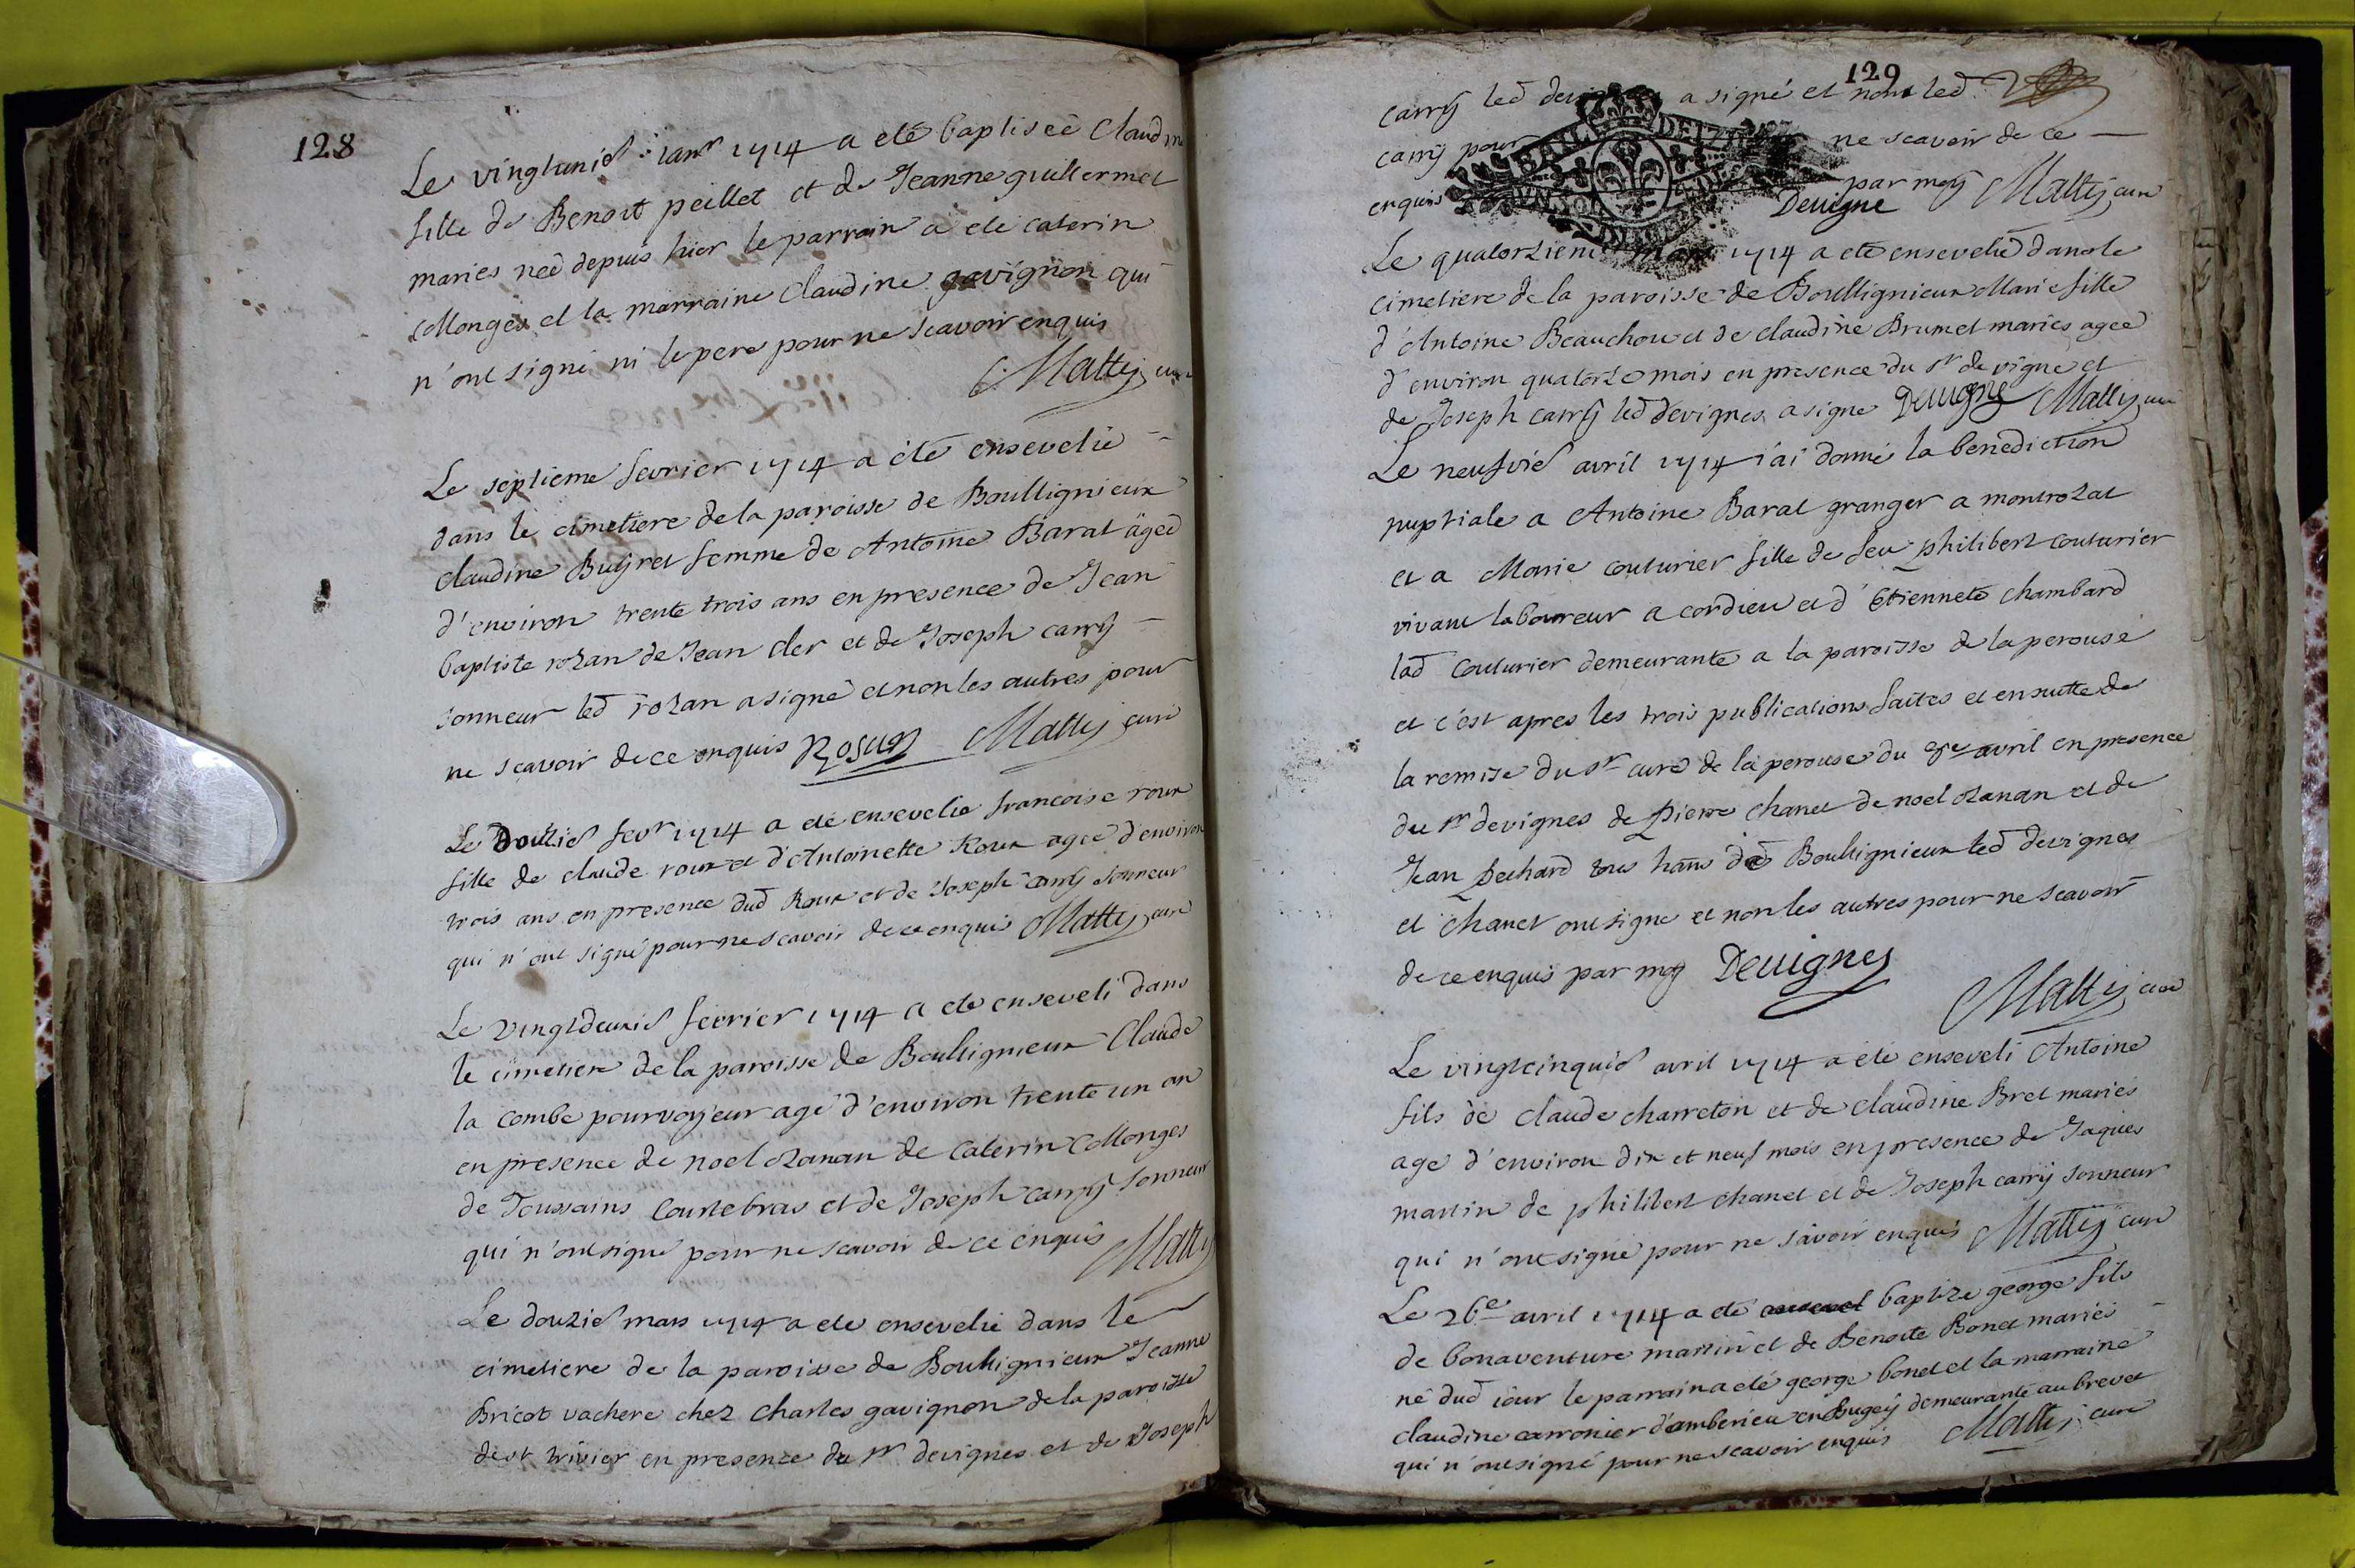 128
Le vingtunie ianr 1714 a eté baptiseé Claudine
fille de Benoit peillet et de Jeanne guillermet
maries neé depuis hier le parrain a eté caterin
Collonges et la marraine Claudine gavignon qui
n'ont signé ni le pere pour ne scavoir enquis
Mattÿ curé
Le septieme fevrier 1714 a été ensevelie
dans le cimetiere de la paroisse de Boullignieux
claudine Buÿret femme de Antoine Barat âgeé
d'environ trente trois ans en presence de Jean
baptiste rozan de Jean cler et de Joseph carrÿ
sonneur led rozan a signé et non les autres pour
ne scavoir de ce enquis Rosan Mattÿ curé
Le douzie fevr 1714 a eté ensevelie francoise roux
fille de claude roux et d'Antoinette Roux ageé d'environ
trois ans en presence dud Roux et de Joseph carrÿ sonneur
qui n'ont signé pour ne scavoir de ce enquis Mattÿ curé
Le vingtdeuxie fevrier 1714 a eté enseveli dans
le cimetiere de la paroisse de Boullignieux Claude
la combe pourvoÿeur agé d'environ trente un an
en presence de noel ozanan de Caterin Collonges
de Toussains Courtebras et de Joseph carrÿ sonneur
qui n'ont signé pour ne scavoir de ce enquis Mattÿ
Le douzie mars 1714 a eté ensevelie dans le
cimetiere de la paroisse de Boullignieux Jeanne
Bricot vachere chez Charles gavignon de la paroisse
de st trivier en presence du sr devignes et de Joseph
129
carrÿ led devignes a signé et non led
carrÿ pour ne scavoir de ce
enquis par moÿ Mattÿ curé
Devigne
Le quatorzieme mars 1714 a eté ensevelie dans le
cimetiere de la paroisse de Boullignieux Marie fille
d'Antoine Beauchou et de claudine Brunet maries ageé
d'environ quatorze mois en presence du sr devigne et
de Joseph carrÿ led devignes a signé Devigne Mattÿ curé
Le neufvie avril 1714 i'ai donné la benediction
nuptiale a Antoine Barat granger a montrozat
et a Marie couturier fille de feu philibert couturier
vivant laboureur a cordieu et d'Etiennete chambard
lad couturier demeurante a la paroisse de la perouse
et c'est apres les trois publications faites et ensuitte de
la remise du sr curé de la perouse du 8e avril en presence
du sr devignes de Pierre chanet de noel ozanan et de
Jean Pechard tous hans de Boullignieux led devignes
et chanet ont signé et non les autres pour ne scavoir
de ce enquis par moÿ Devignes
Mattÿ curé
Le vingtcinquie avril 1714 a eté enseveli Antoine
fils de claude charreton et de claudine Bret mariés
agé d'environ dix et neuf mois en presence de Jaques
martin de philibert chanet et de Joseph carrÿ sonneur
qui n'ont signé pour ne savoir enquis Mattÿ curé
Le 26e avril 1714 a eté baptize george fils
de bonaventure martin et de Benoite Bonet mariés
né dud iour le parrain a eté george bonet et la marraine
claudine carronier d'amberieu en Bugeÿ demeurante au brevet
qui n'ont signé pour ne scavoir enquis Mattÿ curé